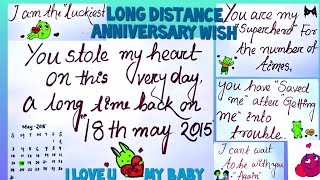 I am the "Luckiest"
LONG DISTANCE
ANNIVERSARY WISH
You stole my heart
on this very day,
a long time back on
"18th may 2015
May-2015
S M T W T F S
I LOVE U MY BABY
You are my
"Superhero" For
the number of
times,
you have "Saved
me" after "Getting
me" into
trouble.
I cant wait
To be with you
"Again"